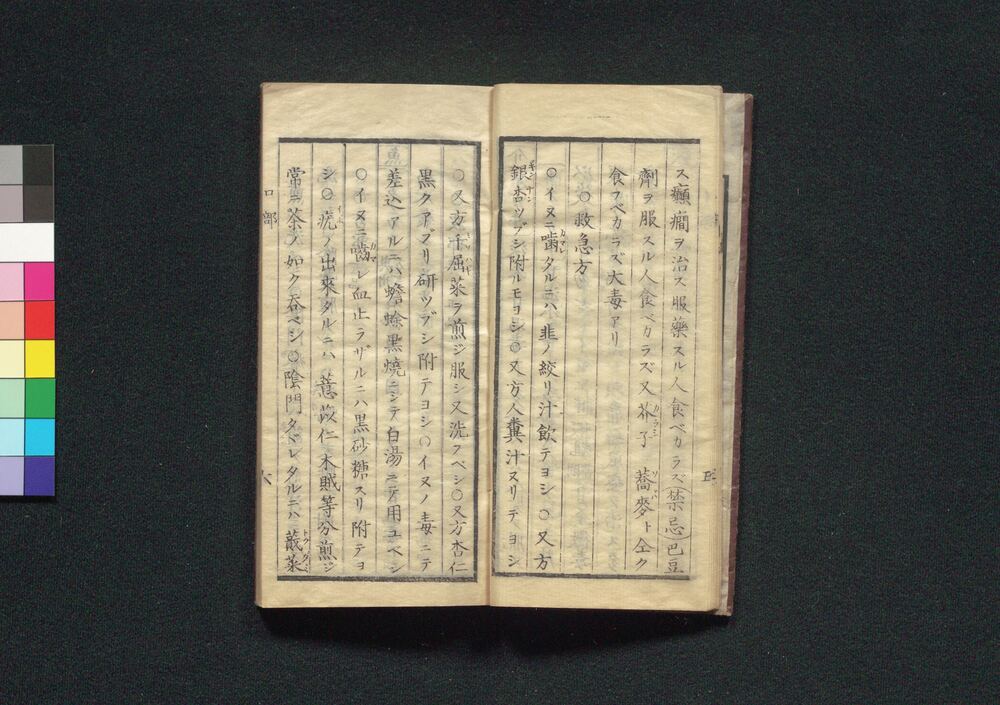 ス癲癇ヲ治ス服藥スル人食ベカラズ(禁忌)巴豆
劑ヲ服スル人食ベカラズ又芥子 蕎麥ト仝ク
カラシ ソバ
食フベカラズ大毒アリ
○救急方
○イヌニ嚙タルニハ韭ノ絞リ汁飲テヨシ○又方
カマレ
銀杏ツブシ附ルモヨシ○又方人糞汁ヌリテヨシ
ギンナン
○又方千屈菜ヲ煎ジ服シ又洗フベシ○又方杏仁
黒クアブリ研ツブシ附テヨシ○イヌノ毒ニテ
差込アルニハ蟾蜍黒燒ニシテ白湯ニテ用ユベシ
○イヌニ嚙レ血止ラザルニハ黒砂糖スリ附テヨ
カマ
シ○疣ノ出來タルニハ薏苡仁木賊等分煎ジ
イボ
常ニ茶ノ如ク呑ベシ○陰門タヾレタルニハ蕺菜
ドクダミ
口部
六